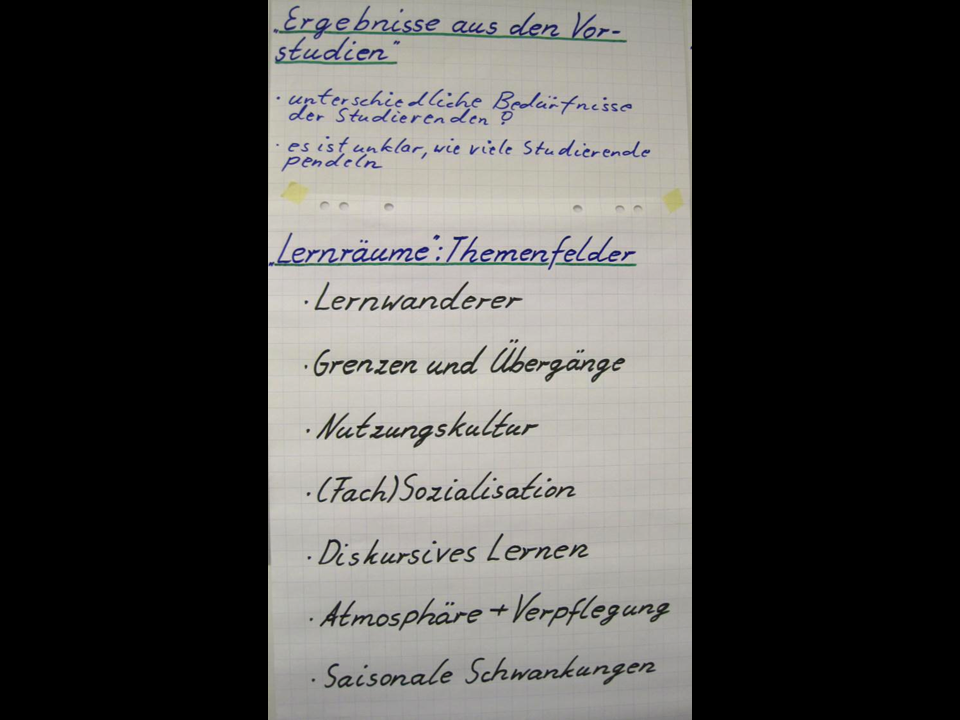 „Ergebnisse aus den Vor-
studien“
· unterschiedliche Bedürfnisse
der Studierenden?
· es ist unklar, wie viele Studierende
pendeln
„Lernräume“: Themenfelder
· Lernwanderer
· Grenzen und Übergänge
· Nutzungskultur
· (Fach)Sozialisation
· Diskursives Lernen
· Atmosphäre + Verpflegung
· Saisonale Schwankungen